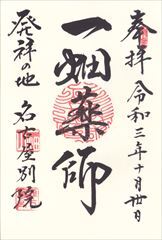 奉拝 令和三年十月廿日
一畑薬師
発祥の地 名古屋別院